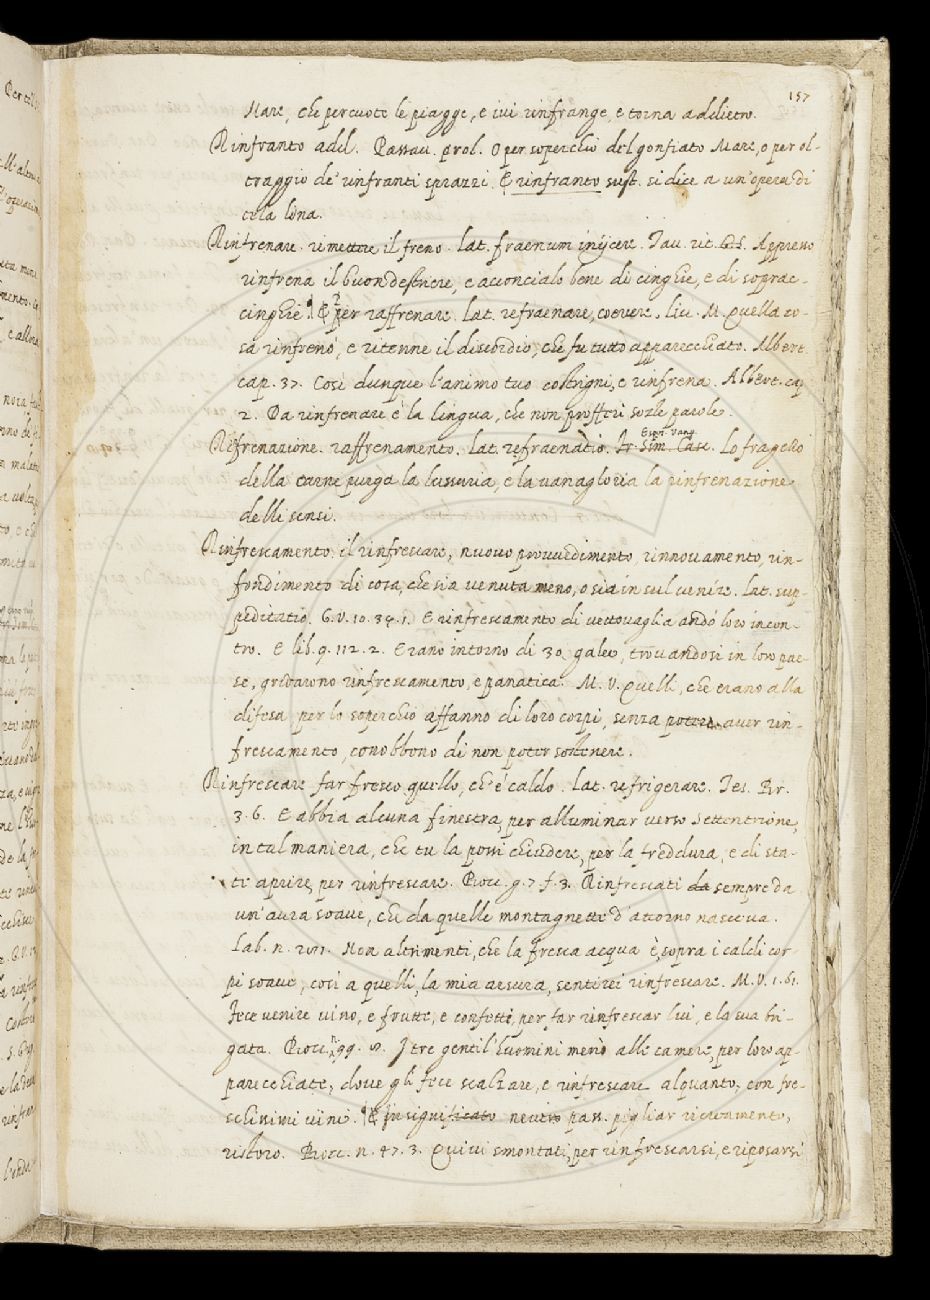 157
Mare, che percuote le piagge, e ivi rinfrange, e torna addietro.
Rinfranto add. Passau. prol. O per soperchio del gonfiato Mare, o per ol-
traggio de' rinfranti sprazzi. E rinfranto sust. si dice a un' opera di
tela lina.
Rinfrenare. rimettere il freno. lat. fraenum inijcere. Tau. rit. G.S. Appresso
rinfrena il buon destriere, e acconcialo bene di cinghie, e di soprac-
cinghie. E per raffrenare. lat. refraenare, coercere. Liu. M. Quella co-
sa rinfrenò, e ritenne il discordio, che fu tutto apparecchiato. Albert.
cap. 37. Così dunque l'animo tuo costrigni, e rinfrena. Albert. cap
2. Da rinfrenare è la lingua, che non profferi sozle parole.
Rifrenazione. raffrenamento. lat. refraenatio. Espo. Vang. Tr. Sim. Casc. Lo fragello
della carne purga la lussuria, e la vanagloria la rinfrenazione
delli sensi.
Rinfrescamento. il rinfrescare, nuovo provvedimento, rinnovamento, rin-
fondimento di cosa, che sia venuta meno, o sia in sul venire. lat. sup-
peditatio. G.V. 10. 34. 1. E rinfrescamento di vettovaglia andò loro incon-
tro. E lib. 9. 112. 2. Erano intorno di 30 galee, trovandosi in loro pae-
se, gridarono rinfrescamento, e panatica. M. V. Quelli, che erano alla
difesa per lo soperchio affanno di loro corpi, senza potere aver rin-
frescamento, conobbono di non poter sostenere.
Rinfrescare far fresco quello, ch' è caldo. lat. refrigerare. Tes. Br.
3. 6. E abbia alcuna finestra, per alluminar verso Settentrione,
in tal maniera, che tu la possi chiudere, per la freddura, e di sta-
te aprire, per rinfrescare. Bocc. g. 7. f. 3. Rinfrescati da sempre da
un' aura soave, che da quelle montagnette d' attorno nasceva.
Lab. n. 271. Non altrimenti, che la fresca acqua è, sopra i caldi cor-
pi soave, così a quelli, la mia arsura, sentirei rinfrescare. M. V. 1. 61.
Fece venire vino, e frutte, e confetti, per far rinfrescar lui, e la sua bri-
gata. Bocc. n. 99. I tre gentil' huomini menò alle camere, per loro ap-
parecchiate, dove gli fece scalzare, e rinfrescare alquanto, con fre-
schissimi vini. E in significato neutro pass. pigliar ricreamento,
ristoro. Bocc. n. 47. 3. Quivi smontati, per rinfrescarsi, e riposarsi